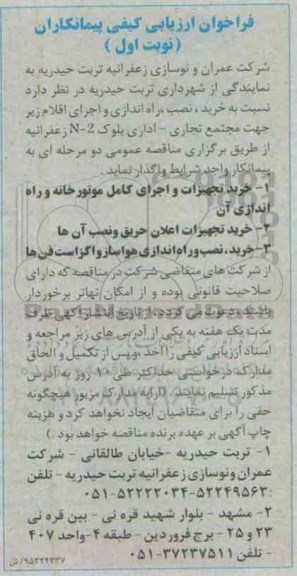 فراخوان ارزیابی کیفی پیمانکاران
(نوبت اول)
شرکت عمران و نوسازی زعفرانیه تربت حیدریه به
نمایندگی از شهرداری تربت حیدریه در نظر دارد
نسبت به خرید ، نصب ،راه اندازی و اجرای اقلام زیر
جهت مجتمع تجاری – اداری بلوک N-2 زعفرانیه
از طریق برگزاری مناقصه عمومی دو مرحله ای به
پیمانکار واجد شرایط واگذار نماید.
۱- خرید تجهیزات و اجرای کامل موتورخانه و راه
اندازی آن
۲- خرید تجهیزات اعلان حریق ونصب آن ها
۳-خرید، نصب و راه اندازی هواساز و اگزاست فن ها
از شرکت های متقاضی شرکت در مناقصه که دارای
صلاحیت قانونی بوده و از امکان تهاتر برخوردار
باشند دعوت می گردد، از تاریخ انتشار آگهی ظرف
مدت یک هفته به یکی از آدرس های زیر مراجعه و
اسناد ارزیابی کیفی را اخذ ،وپس از تکمیل و الحاق
مدارک درخواستی حداکثر طی ۱۰ روز به آدرس
مذکور تسلیم نمایند. (ارایه مدارک مزبور هیچگونه
حقی را برای متقاضیان ایجاد نخواهد کرد و هزینه
چاپ آگهی بر عهده برنده مناقصه خواهد بود.)
۱- تربت حیدریه -خیابان طالقانی - شرکت
عمران ونوسازی زعفرانیه تربت حیدریه - تلفن
:۵۲۲۴۹۵۶۳-۵۲۲۲۲۰۳۴-۰۵۱
۲- مشهد - بلوار شهید قره نی - بین قره نی
۲۳ و ۲۵ - برج فروردین - طبقه ۴ -واحد ۴۰۷
- تلفن ۳۷۲۳۷۵۱۱-۰۵۱
۹۵۲۲۹۳۳۷/ش